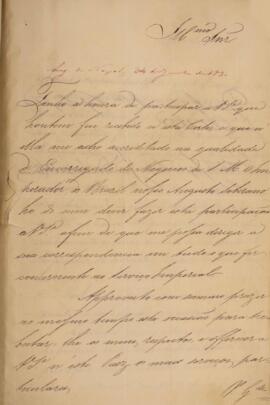 Illmo Snr
Tenho a honra de participar a V.Sa. que
hontem fui recebido n'esta Corte, e que n'
ella me acho acreditado na qualidade
d'Encarregado de Negocios de S. M. O Im
perador do Brazil nosso Augusto Soberano
de meu dever fazer esta participação
a V.Sa. afim de que me possa dirigir a
sua correspondencia em tudo o que for
concernente ao Serviço Imperial.
Aproveito com summo prazer
ao mesmo tempo esta occasião para tri
butar-lhe os meus respeitos e offerecer a
V.Sa. n'este Paiz os meus serviços par
ticulares.